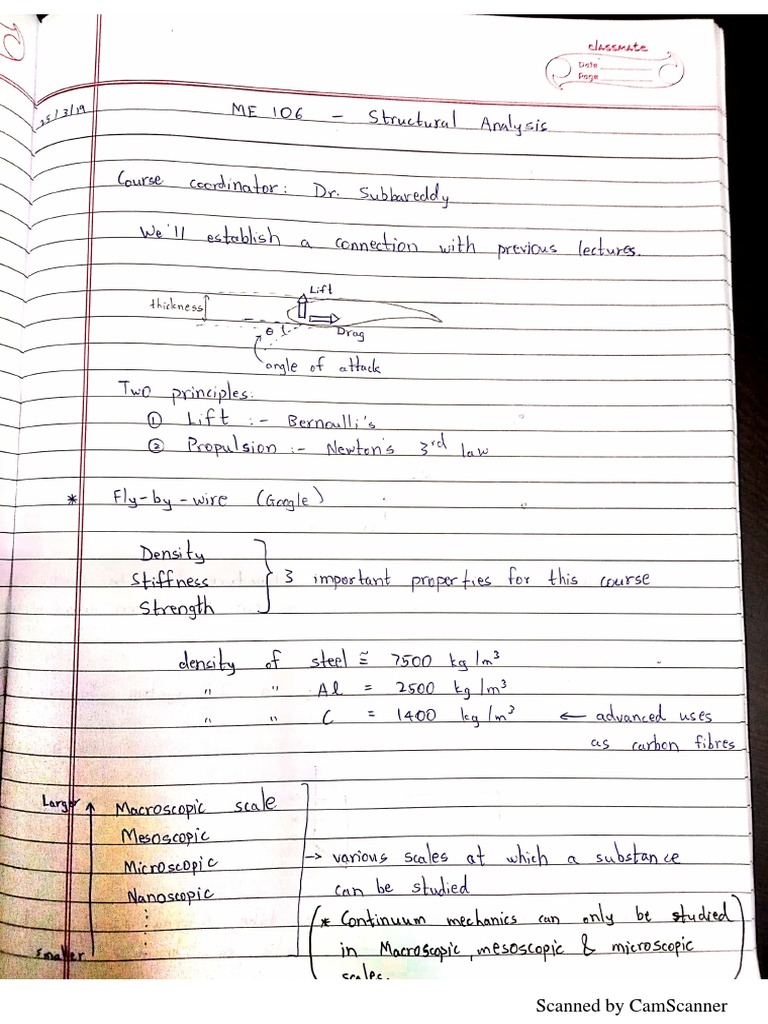 classmate
Date
Page
25/3/19
ME 106 - Structural Analysis
Course coordinator: Dr. Subbareddy
We'll establish a connection with previous lectures.
Lift
thickness
θ
Drag
angle of attack
Two principles:
① Lift :- Bernoulli's
② Propulsion :- Newton's 3rd law
* Fly-by-wire (Google)
Density
Stiffness
Strength
3 important properties for this course
density of steel ≅ 7500 kg/m³
" " Al = 2500 kg/m³
" " C = 1400 kg/m³ ← advanced uses
as carbon fibres
Larger
Macroscopic scale
Mesoscopic
Microscopic
Nanoscopic
Smaller
→ various scales at which a substance
can be studied
(* Continuum mechanics can only be studied
in Macroscopic, mesoscopic & microscopic
scales.)
Scanned by CamScanner